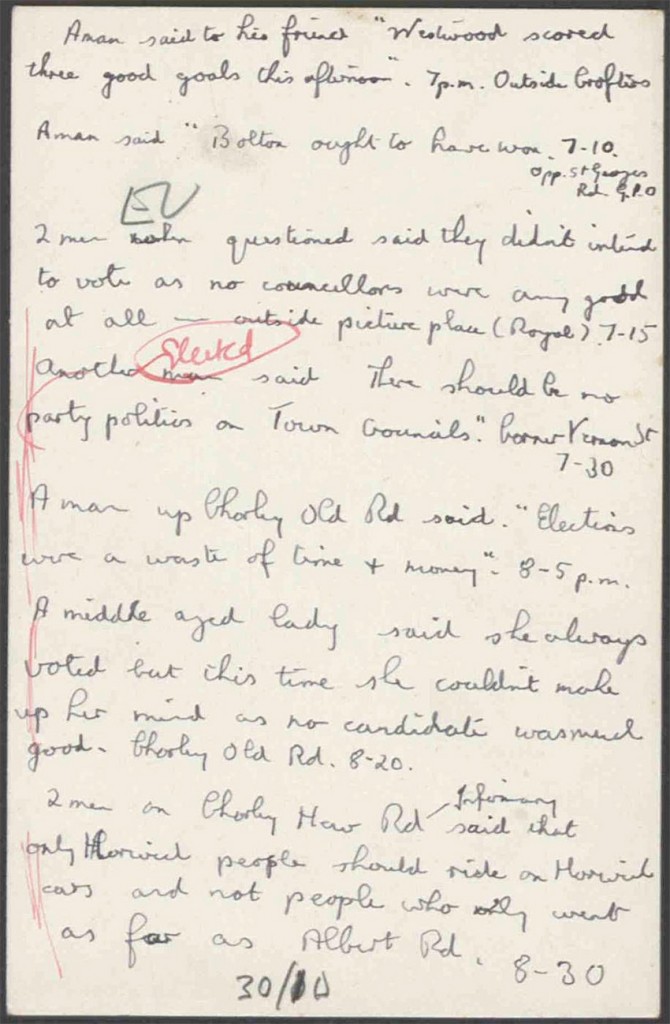 A man said to his friend "Westwood scored
three good goals this afternoon". 7p.m. Outside Croftus
A man said "Bolton ought to have won. 7-10.
Opp. St Georges
Rd. G.P.O
2 men when questioned said they didn't intend
to vote as no councillors were any good
at all — outside picture place (Royal) 7-15
Elected
Another man said there should be no
party politics on Town Councils". Corner Vernon St
7-30
A man up Chorley Old Rd said. "Elections
were a waste of time + money". 8-5 p.m.
A middle aged lady said she always
voted but this time she couldn't make
up her mind as no candidate was much
good. Chorley Old Rd. 8-20.
Infirmary
2 men on Chorley New Rd said that
only Horwich people should ride on Horwich
cars and not people who only went
as far as Albert Rd. 8-30
30/10